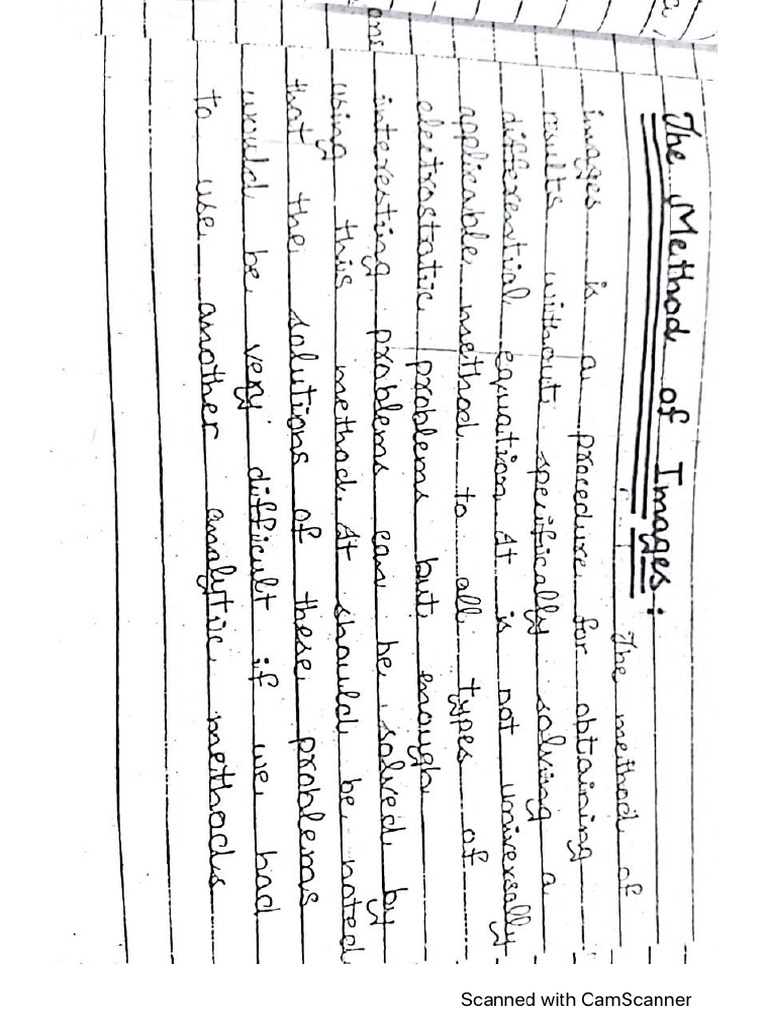 The Method of Images:
The method of
images is a procedure for obtaining
results without specifically solving a
differential equation. It is not universally
applicable method to all types of
electrostatic problems but enough
interesting problems can be solved by
using this method. It should be noted
that the solutions of these problems
would be very difficult if we had
to use another analytic methods
Scanned with CamScanner